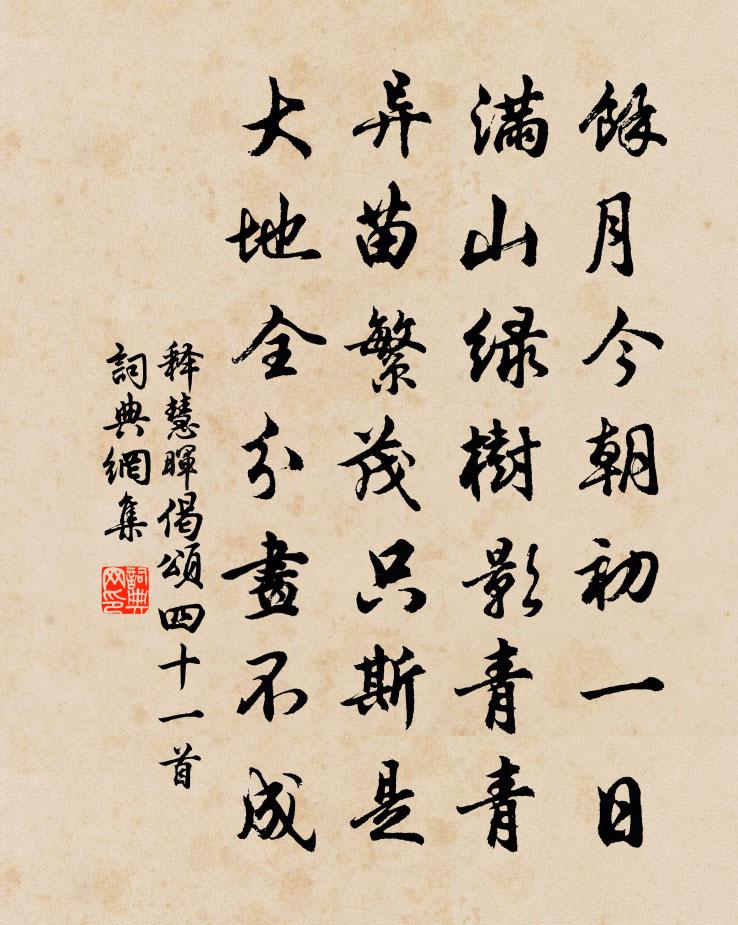 餘月今朝初一日
滿山绿樹影青青
异苗繁茂只斯是
大地全分畫不成
释慧暉偈頌四十一首
詞典網集
詞典网印